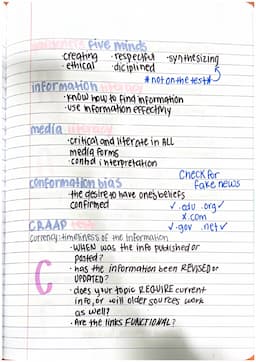 five minds
creating · respectful · synthesizing
· ethical · diciplined
*not on the test*
information literacy
· know how to find information
· use information effectivly
media literacy
· critical and literate in ALL
media forms
· contrl interpretation
conformation bias
· the desire to have one's beliefs
confirmed
Check for
fake news
✓ .edu .org ✓
x .com
✓ .gov .net ✓
CRAAP test
currency: timeliness of the information
C
· WHEN was the info published or
posted?
· has the information been REVISED or
UPDATED?
· does your topic REQUIRE current
info, or will older sources work
as well?
· Are the links FUNCTIONAL?